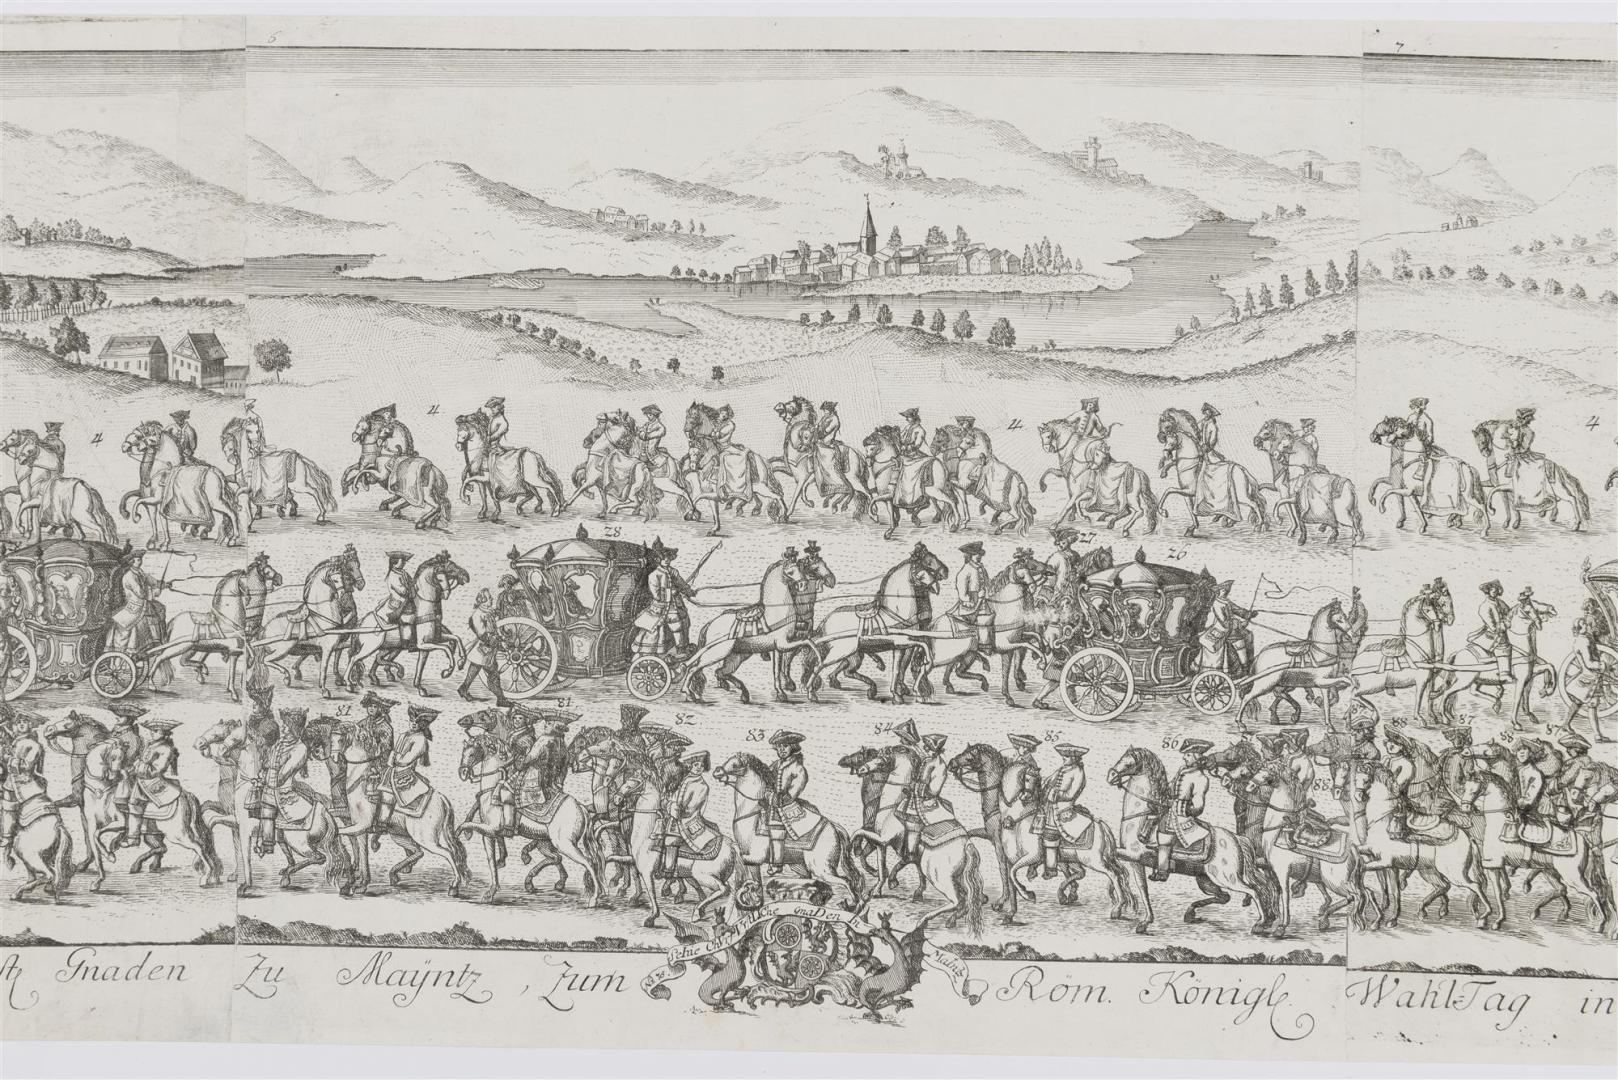 6
7
4
4
4
4
28
27
26
81
81
82
83
84
85
86
88
88
87
88
87
Seine Churfürstliche Gnaden in
Maintz
Gnaden Zu Maÿntz, Zum Röm. Königl. Wahl-Tag in